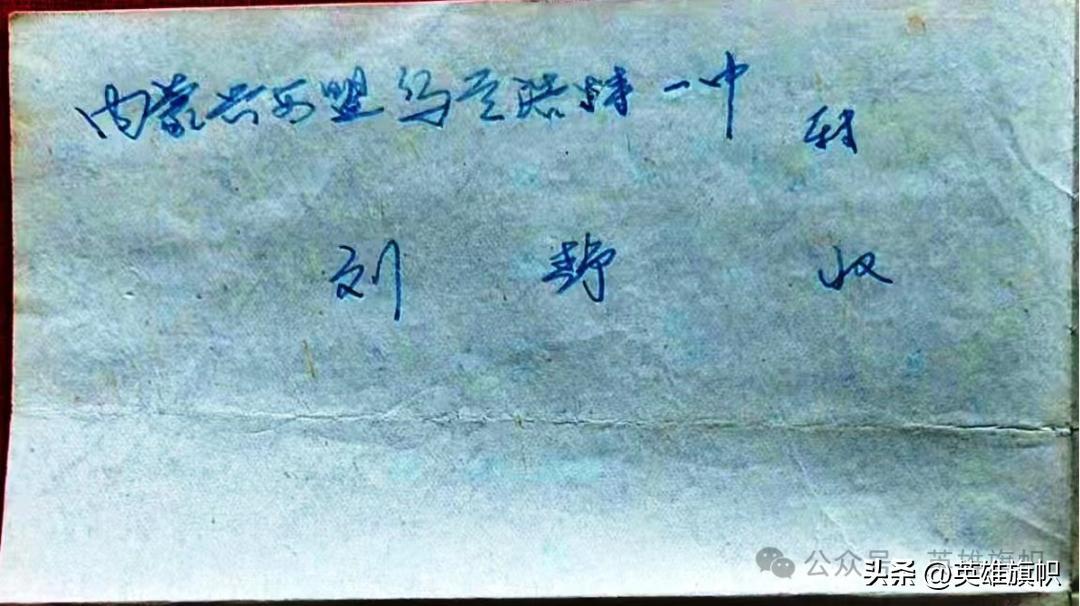 内蒙兴安盟乌兰浩特一中 转
刘 野 收
公众号 · 英雄旗帜
头条 @英雄旗帜